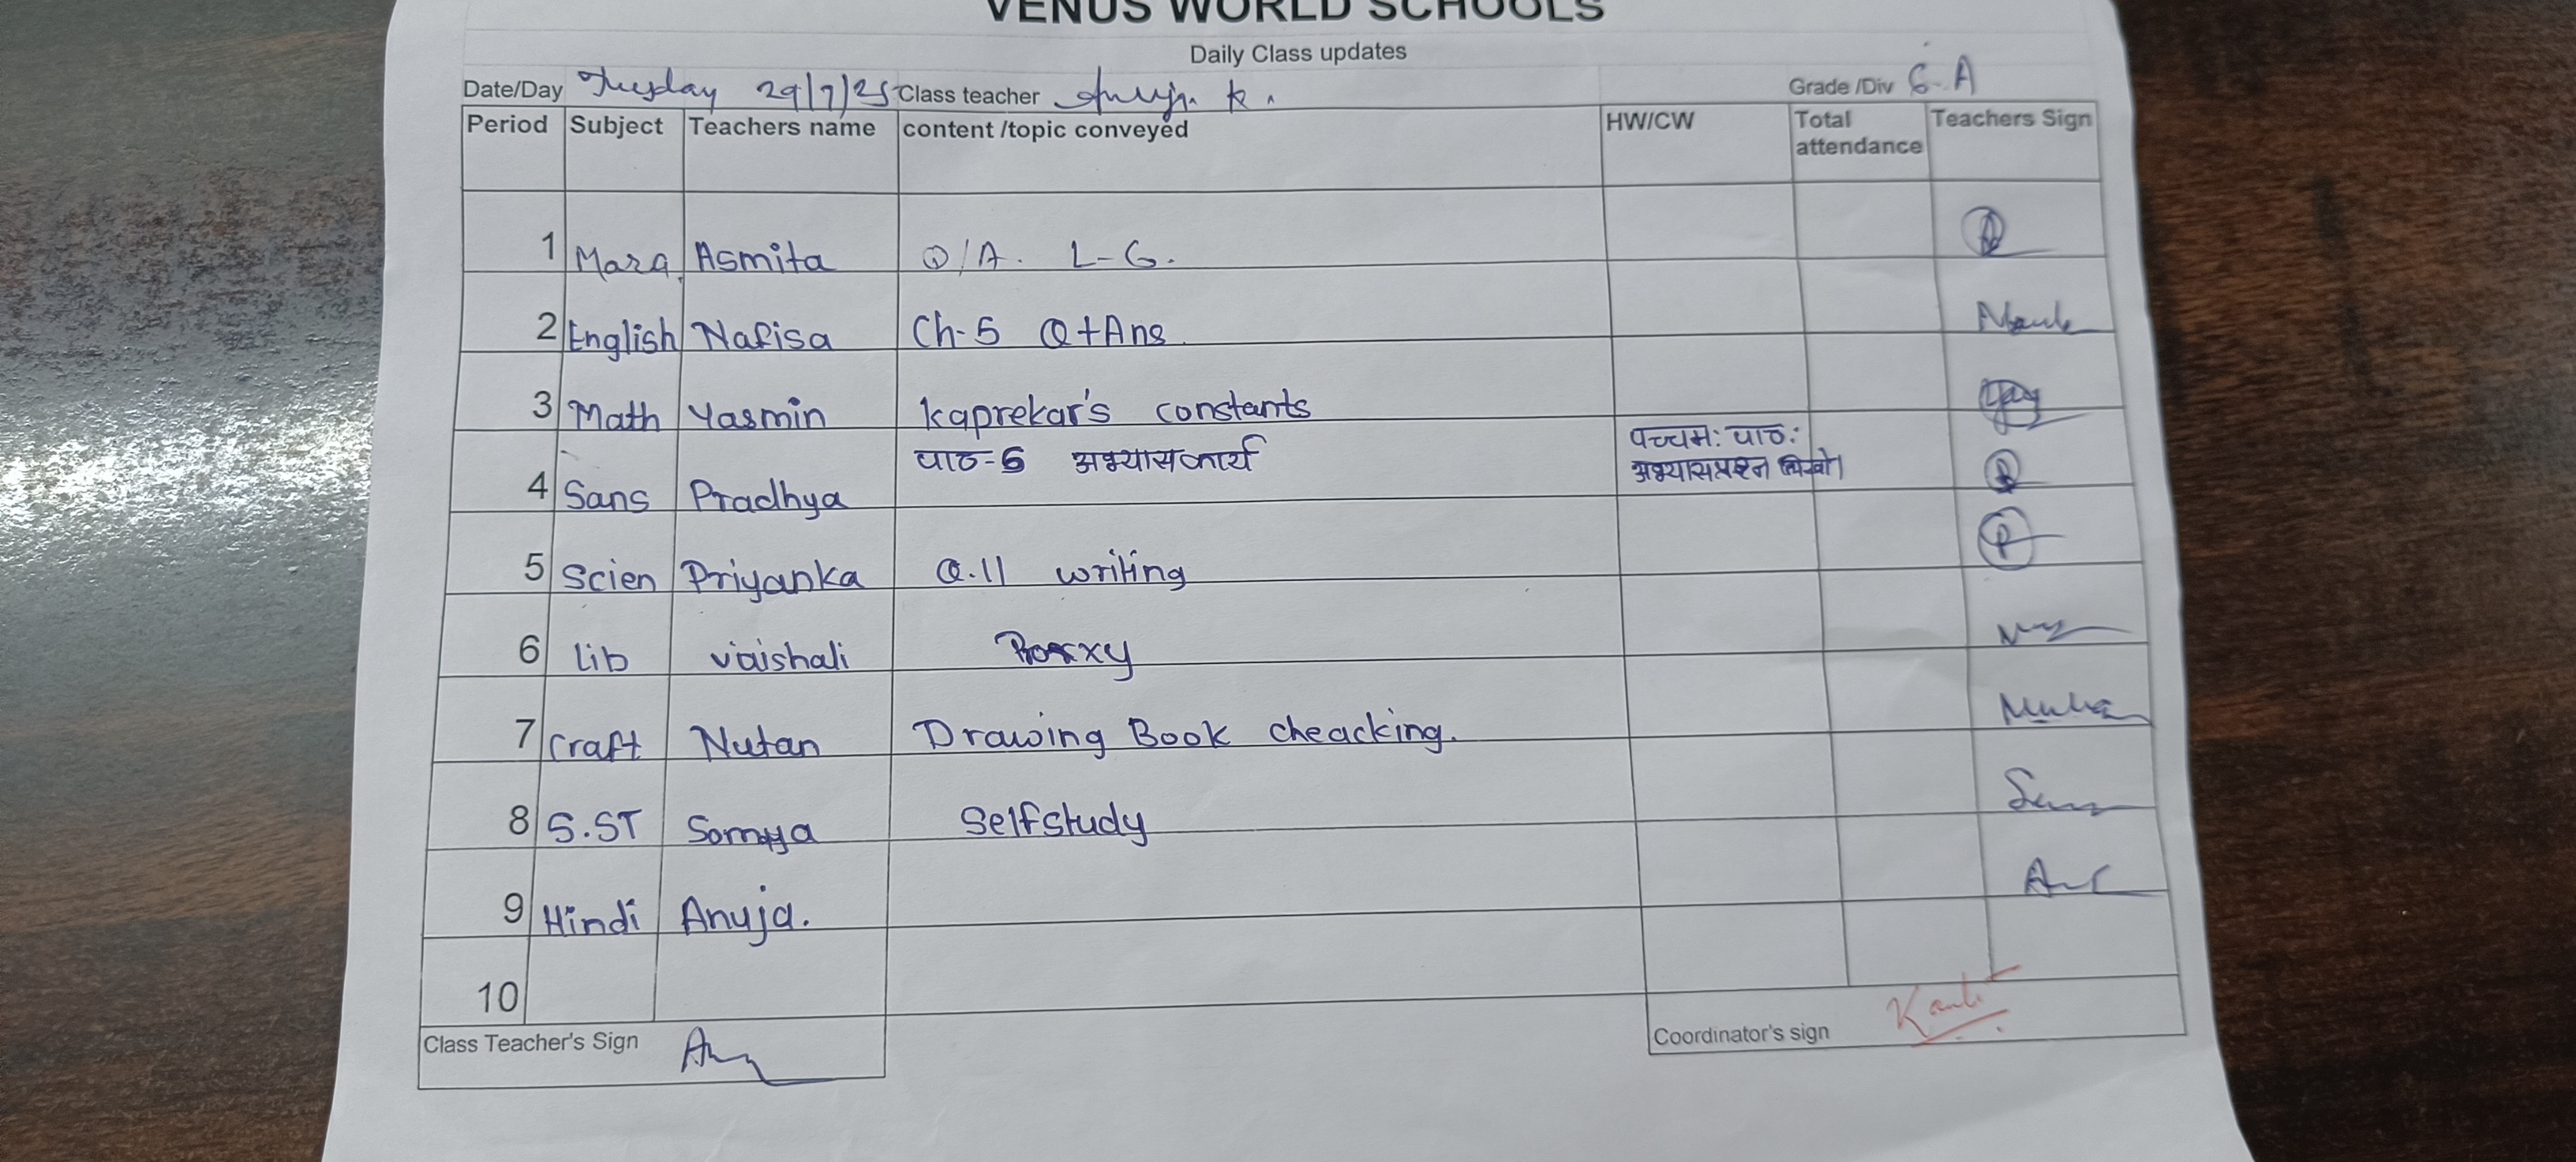 VENUS WORLD SCHOOLS
Daily Class updates
Date/Day Tuesday 29/7/25 Class teacher Anuja. K. Grade /Div 6-A
Period Subject Teachers name content /topic conveyed HW/CW Total attendance Teachers Sign
1 Mara. Asmita Q/A. L-6.
2 English Nafisa Ch-5 Q+Ans
3 Math Yasmin Kaprekar's constants
4 Sans Pradhya पाठ-6 अभ्यासकार्य पच्चम: पाठ: अभ्यासप्रश्न लिखो।
5 Scien Priyanka Q.11 writing
6 Lib vaishali
7 Craft Nutan Drawing Book cheacking.
8 S.ST Somya Selfstudy
9 Hindi Anuja.
10
Class Teacher's Sign Coordinator's sign